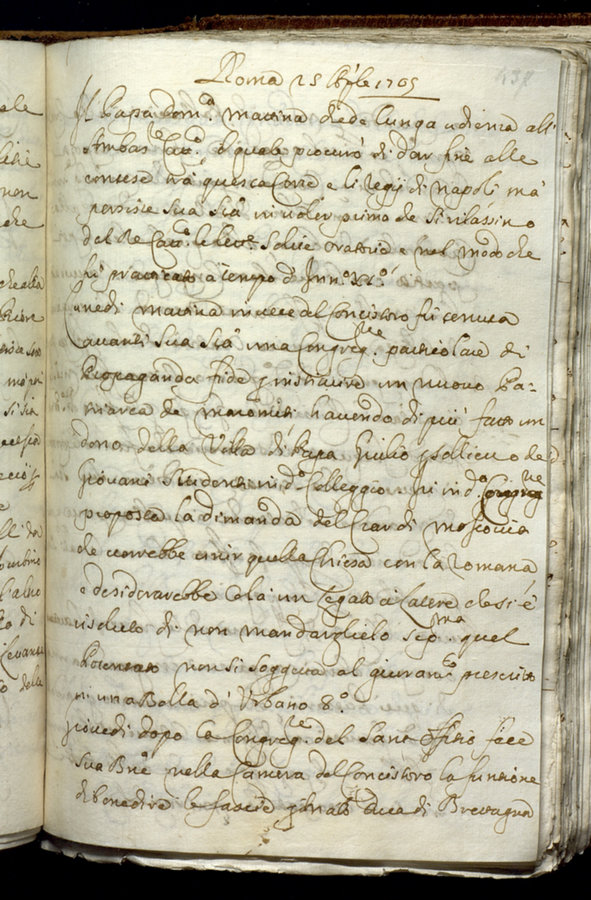 Roma 25 Ap̃le 1705
Il Papa Dom.ca mattina diede lunga udienza all'
Ambas.re Catt.o il quale procurò di dar fine alle
contese trà questa Corte e li Regij di Napoli mà
persiste Sua S.tà in voler prima che si rilassino
del Re Catt.o le lett.re solite oratorie e nel modo che
fù pratticato a tempo d'Inn.o XI.o
Lunedi mattina invece del Concistoro fù tenuta
avanti Sua S.tà una Congreg.ne particolare di
Propaganda fide p instituire un nuovo Pa-
triarca de Maroniti havendo di più fatto un
dono della Villa di Papa Giulio p sollievo de
Giovani Studenti in d.o Colleggio. Fù in d.a Congreg.ne
proposta la dimanda del Czar di Moscovia
che vorrebbe unir quella Chiesa con la Romana
e desiderarebbe colà un Legato à Latere che si è
risoluto di non mandarglielo se p.ma quel
Potentato non si soggetta al giuram.to prescritto
in una Bolla d'Urbano 8.o
Giovedi dopo la Congreg.ne del Sant'Offitio fece
Sua Bne nella Camera del Concistoro la funtione
di benedire le fascie p il nato Duca di Brettagna